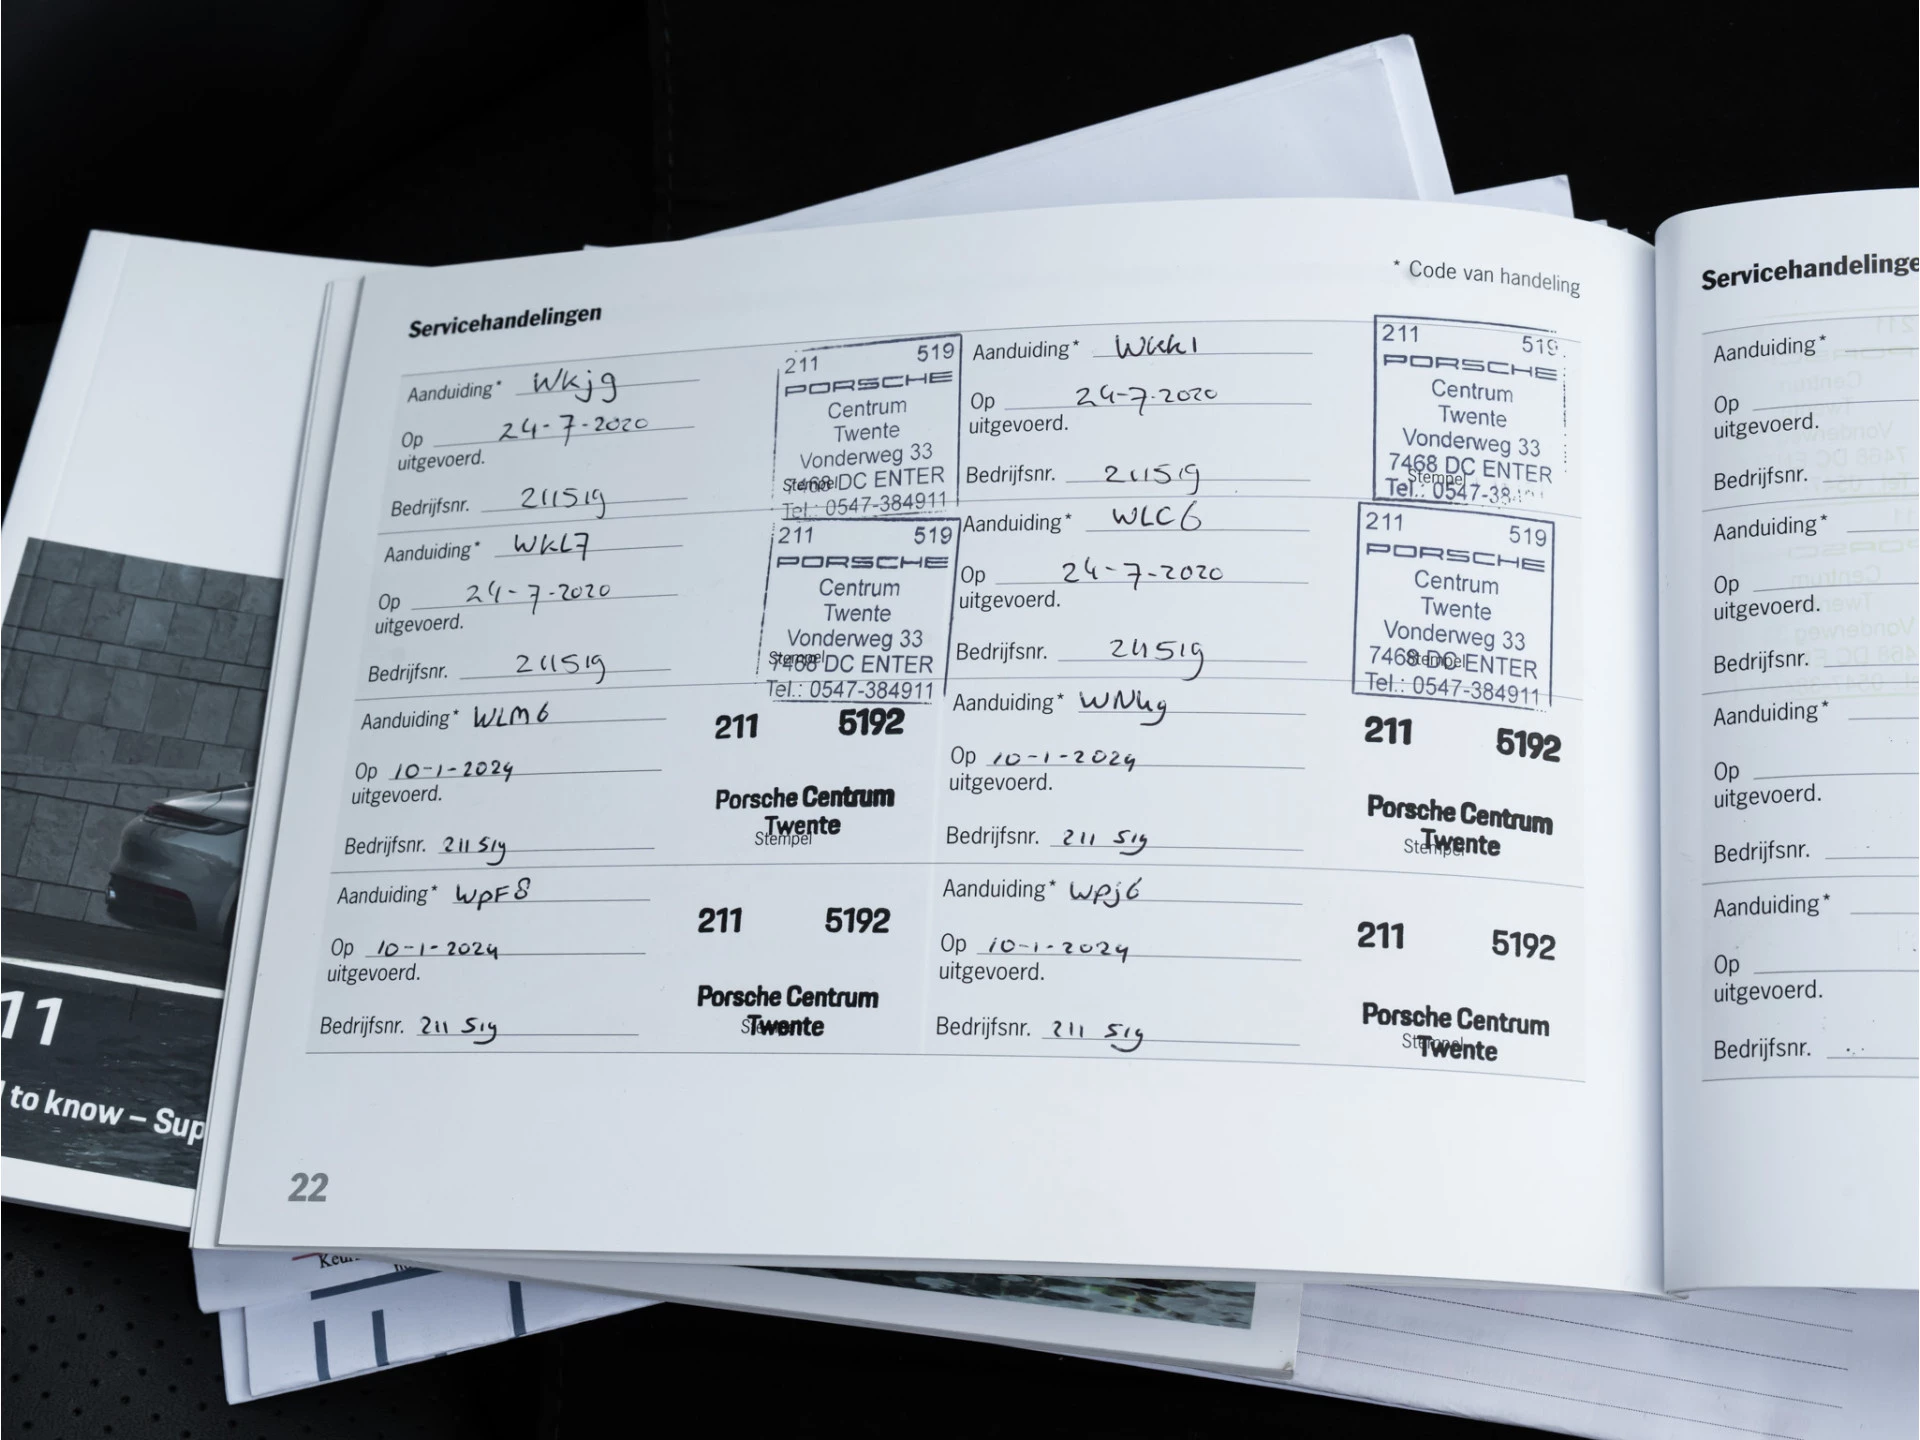 Servicehandelingen
* Code van handeling
Aanduiding* WKjg
Op 24-7-2020
uitgevoerd.
Bedrijfsnr. 211519
211 519
PORSCHE
Centrum
Twente
Vonderweg 33
7468 DC ENTER
Stempel
Tel.: 0547-384911
Aanduiding* WKK1
Op 24-7-2020
uitgevoerd.
Bedrijfsnr. 211519
211 519
PORSCHE
Centrum
Twente
Vonderweg 33
7468 DC ENTER
Stempel
Tel.: 0547-384911
Aanduiding* WKL7
Op 24-7-2020
uitgevoerd.
Bedrijfsnr. 211519
211 519
PORSCHE
Centrum
Twente
Vonderweg 33
7468 DC ENTER
Stempel
Tel.: 0547-384911
Aanduiding* WLC6
Op 24-7-2020
uitgevoerd.
Bedrijfsnr. 211519
211 519
PORSCHE
Centrum
Twente
Vonderweg 33
7468 DC ENTER
Stempel
Tel.: 0547-384911
Aanduiding* WLM6
Op 10-1-2024
uitgevoerd.
Bedrijfsnr. 211 519
211 5192
Porsche Centrum
Twente
Stempel
Aanduiding*
Op 10-1-2024
uitgevoerd.
Bedrijfsnr. 211 519
211 5192
Porsche Centrum
Twente
Stempel
Aanduiding* WpF8
Op 10-1-2024
uitgevoerd.
Bedrijfsnr. 211 519
211 5192
Porsche Centrum
Twente
Stempel
Aanduiding* Wpj6
Op 10-1-2024
uitgevoerd.
Bedrijfsnr. 211 519
211 5192
Porsche Centrum
Twente
Stempel
22
Servicehandelinge
Aanduiding*
Op
uitgevoerd.
Bedrijfsnr.
Aanduiding*
Op
uitgevoerd.
Bedrijfsnr.
Aanduiding*
Op
uitgevoerd.
Bedrijfsnr.
Aanduiding*
Op
uitgevoerd.
Bedrijfsnr.
11
to know – Sup